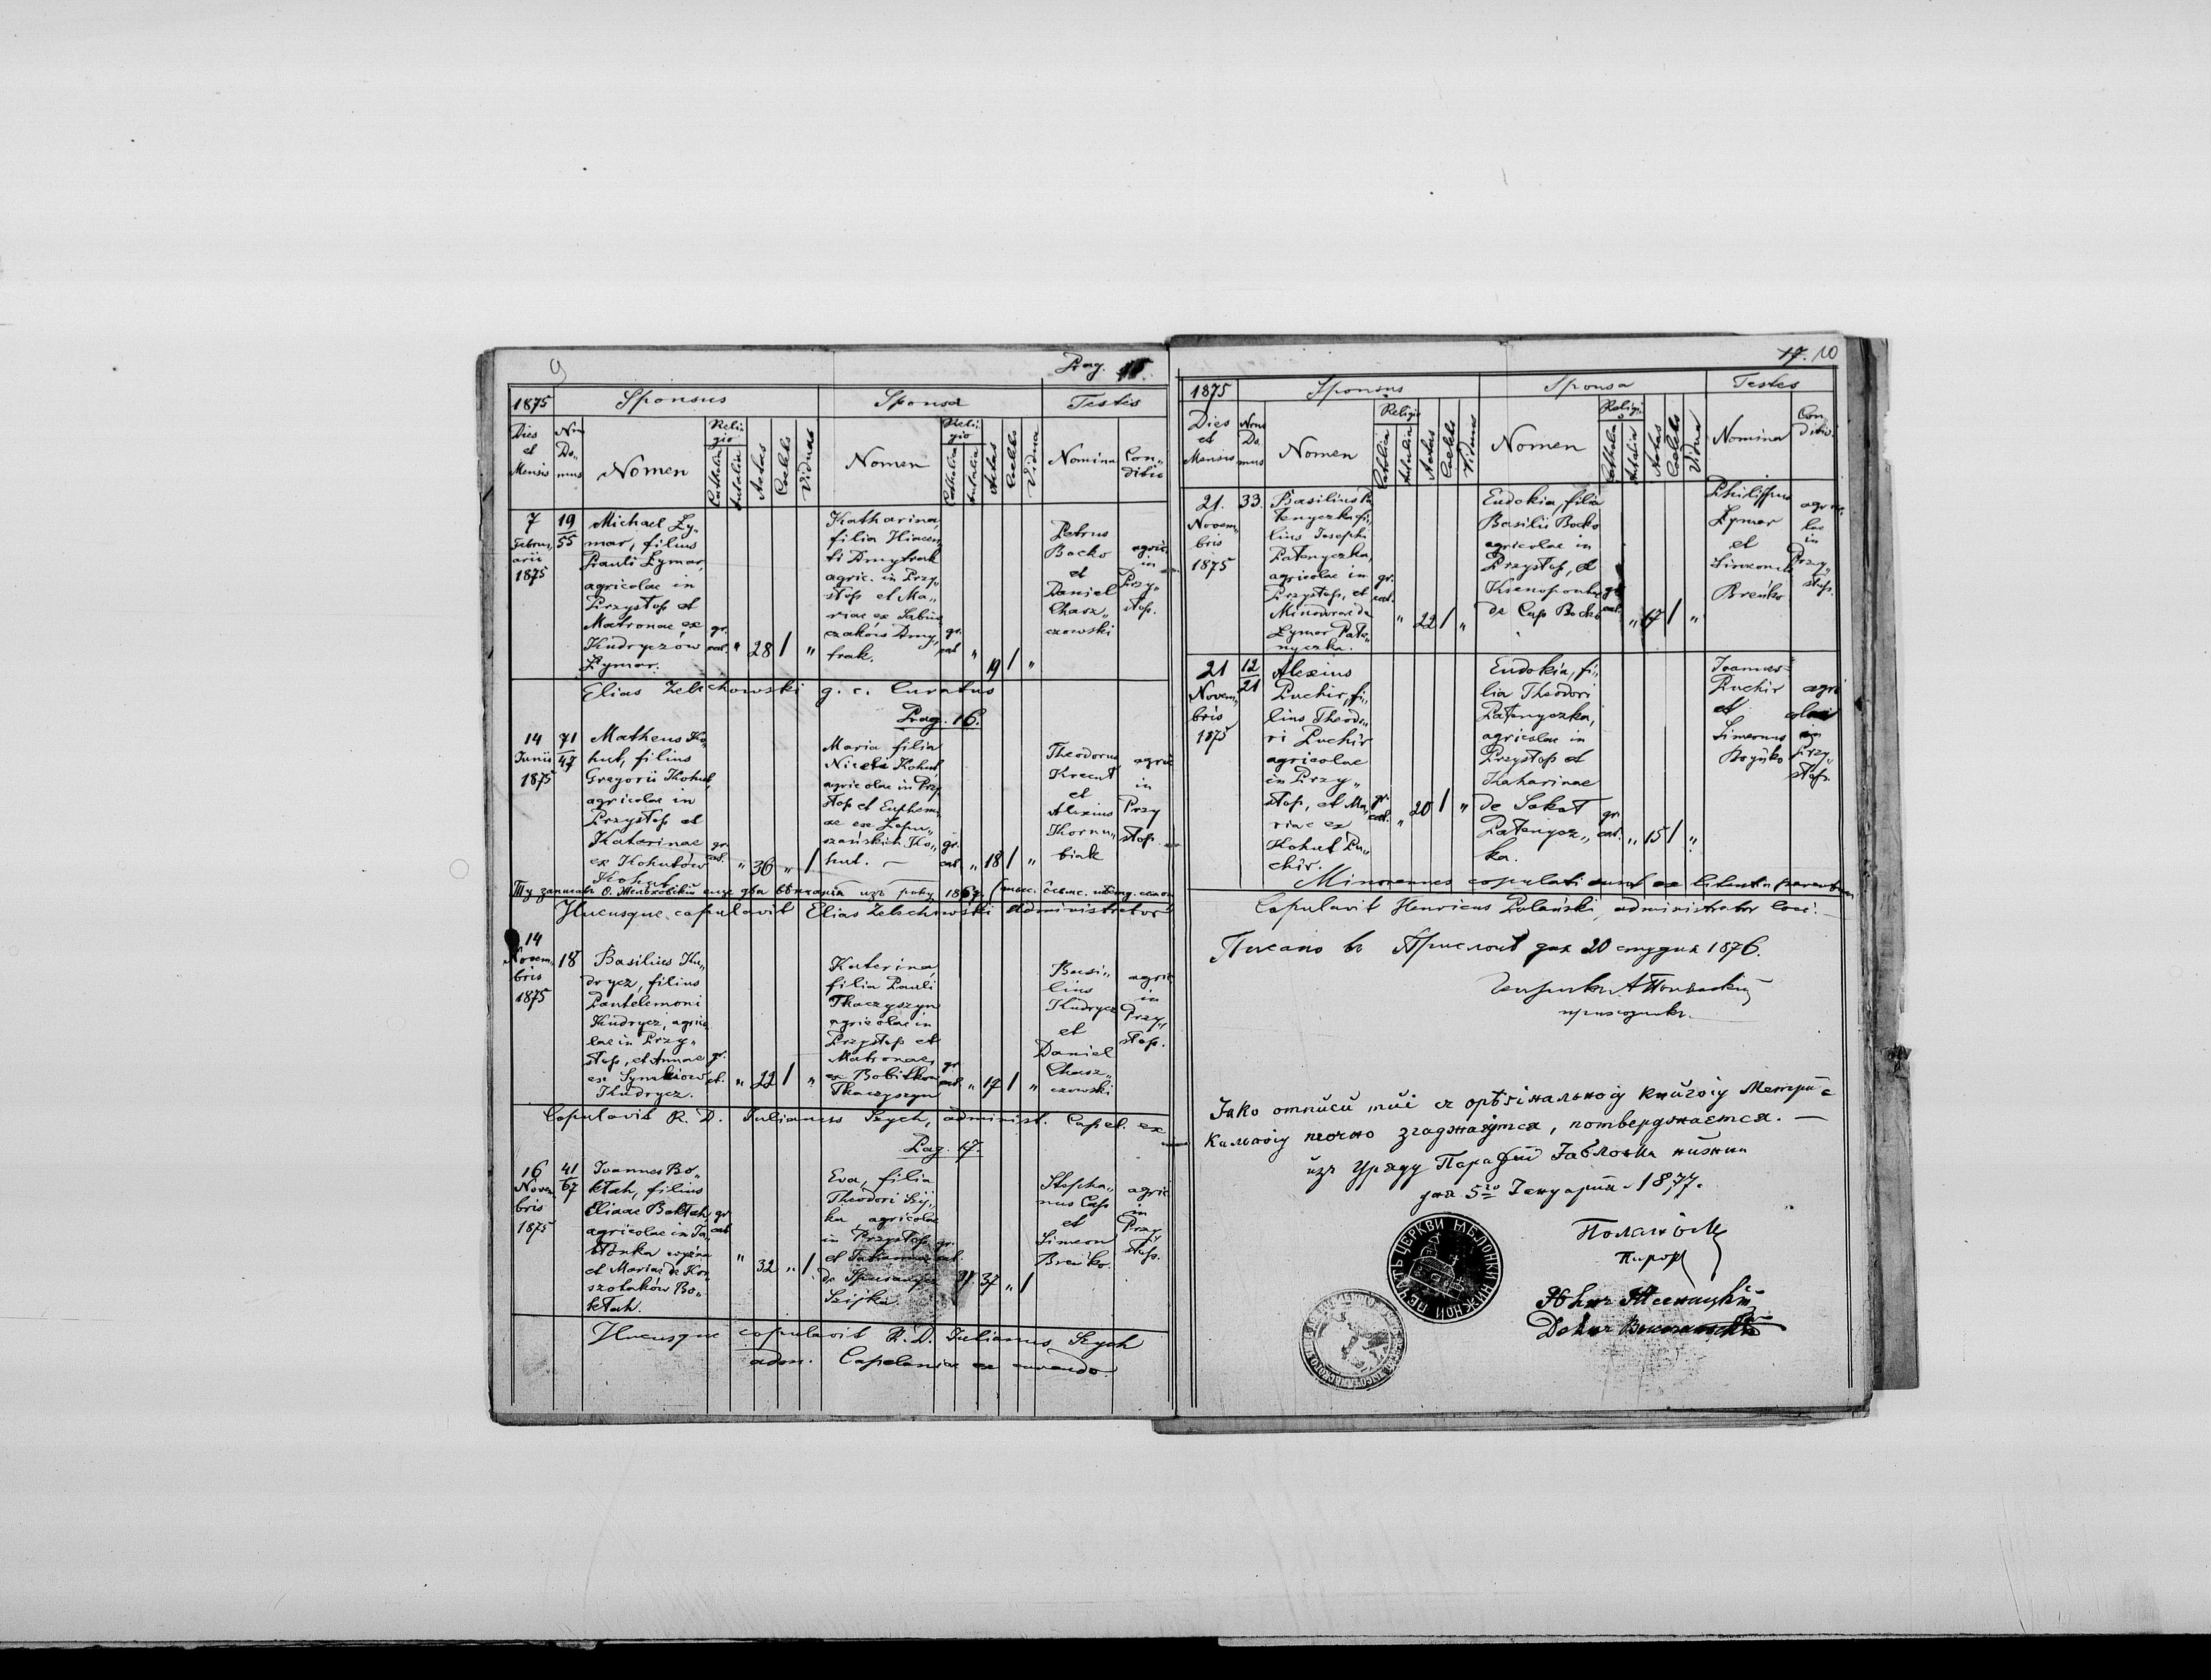 9
Pag. 15.
1875 Sponsus Sponsa Testes
Dies et Mensis Num Domus Nomen Religio Catholica Aut alia Aetas Coelebs Viduus Nomen Religio Catholica Aut alia Aetas Coelebs Vidua Nomina Conditio
7 Februarii 1875
19/55
Michael Ły„
mar, filius
Pauli Łymar,
agricolae in
Przysłop et
Matronae ex
Kudryczów
Łymar.
gr. cat. " 28 1 "
Katharina,
filia Hiacen
ti Dmytrak
agric. in Przy„
słop et Ma„
riae ex
Dmy„
trak.
gr. cat. " 19 1 "
Petrus
Bocko
et
Daniel
Chasz„
czowski
agric.
in
Przy„
słop.
Elias Zelechowski g. c. Curatus
Pag. 16.
14 Junii 1875
71/47
Matheus Ko„
hut, filius
Gregorii Kohut,
agricolae in
Przysłop et
Katarinae
ex Kohutów
Kohut
gr. cat. " 36 " 1
Maria filia
Kohut
agricolae in Przy
słop et Euphemi
ae ex
Ko„
hut. —
gr. cat. " 18 1 "
Theodorus
et
Alexius
Kornu„
biak
agric
in
Przy
słop.
Ту записавъ О. еще два вѣнчанія изъ року 1867.
Hucusque copulavit Elias Zelechowski administrator
14 Novem„ bris 1875
18
Basilius Ku„
drycz, filius
Pantelemoni
Kudrycz, agrico
lae in Przy„
słop, et Annae
ex
Kudrycz.
gr. cat. " 22 1 "
Katerina,
filia Pauli
Tkaczyszyn
agricolae in
Przysłop et
Matronae,
ex
Tkaczyszyn
gr. cat. " 17 1 "
Basi„
lius
Kudrycz
et
Daniel
Chasz„
czowski
agric
in
Przy„
słop.
Copulavit R. D. Julianus Szych, administ. Capel. ex
Pag. 17.
16 Novem bris 1875
41/67
Joannes Bo„
kłah, filius
Eliaae Bokłah,
agricolae in Ja„
błonka wyżna
et Mariae de Kor
szołaków Bo„
kłah.
gr. cat " 32 " 1
Eva, filia
Theodori
ka, agricolae
in Przysłop
et
de
gr. cat. 37 " 1
Stepha„
nus Cap
et
Simeon
Breńko.
agric
in
Przy
słop.
Hucusque copulavit R. D. Julianus Szych
adm. Capelaniae ex currendo.
17. 10
1875 Sponsus Sponsa Testes
Dies et Mensis Num Do. mus Nomen Religio Catholica Aut alia Aetas Coelebs Viduus Nomen Religio Catholica Aut alia Aetas Coelebs Vidua Nomina Con ditio.
21. Novem„ bris 1875
33.
Basilius Pa
tenyczka, fi„
lius Josephi
Patenyczka,
agricolae in
Przysłop, et
de
Łymar Pate„
nyczka.
gr. cat. " 22 1 "
Eudokia, filia
Basilii Bocko
agricolae in
Przysłop, et
de Cap Bocko
gr. cat. " 17 1 "
Philippus
Łymar
et
Simeon
Breńko
agrico
lae
in
Przy„
słop.
21 Novem„ bris 1875
12/21
Alexius
Puchir, fi„
lius Theodo„
ri Puchir
agricolae
in Przy„
słop, et Ma„
riae ex
Kohut Pu„
chir.
gr. cat. " 20 1 "
Eudokia, fi„
lia Theodori
Patenyczka,
agricolae in
Przysłop et
Kaharinae
de Sokoł
Patenycz„
ka.
gr. cat. " 15 1 "
Joannes
Puchir
et
Simeonus
agri
colae
in
Przy„
słop.
Minorennes copulati sunt ex licentia parentum
Copulavit Henricus Polański, administrator loci.
Писано въ Прислопѣ дня 20 студня 1876.
приходникъ.
Jако отписи тиі съ орѣгінальною книгою Метри„
кальною точно згаджаются, потверджается. —
изъ Уряду Парафіи Jаблонка нижна
дня 5го Jануарія 1877.
ПЕЧАТЬ ЦЕРКВИ ЯБЛОНКИ НИЖНОЙ